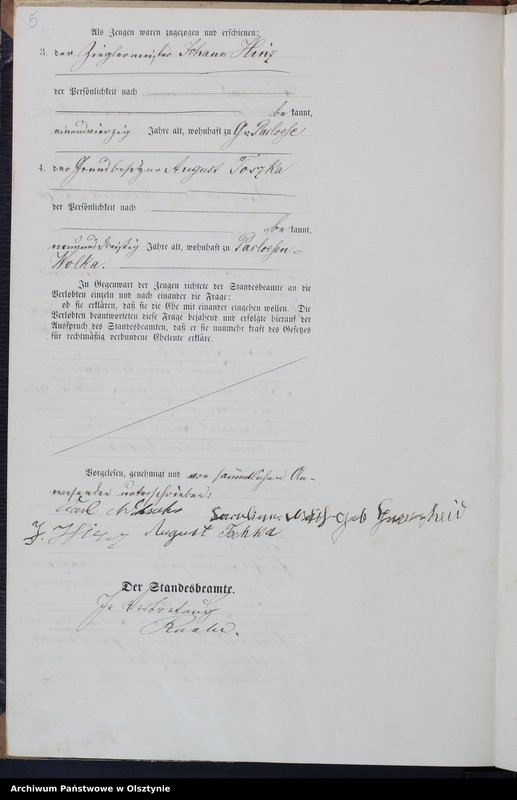 5
Als Zeugen waren zugezogen und erschienen:
3. der Zieglermeister Johann Hinz
der Persönlichkeit nach
bekannt,
einundvierzig Jahre alt, wohnhaft zu Gr. Parloese
4. der Grundbesitzer August Toszka
der Persönlichkeit nach
bekannt,
neununddreißig Jahre alt, wohnhaft zu Parloesen-
Wolka.
In Gegenwart der Zeugen richtete der Standesbeamte an die
Verlobten einzeln und nach einander die Frage:
ob sie erklären, daß sie die Ehe mit einander eingehen wollen. Die
Verlobten beantworteten diese Frage bejahend und erfolgte hierauf der
Ausspruch des Standesbeamten, daß er sie nunmehr kraft des Gesetzes
für rechtmäßig verbundene Eheleute erkläre.
Vorgelesen, genehmigt und von sämmtlichen An-
wesenden unterschrieben:
geb
August
Der Standesbeamte.
In Vertretung
Archiwum Państwowe w Olsztynie